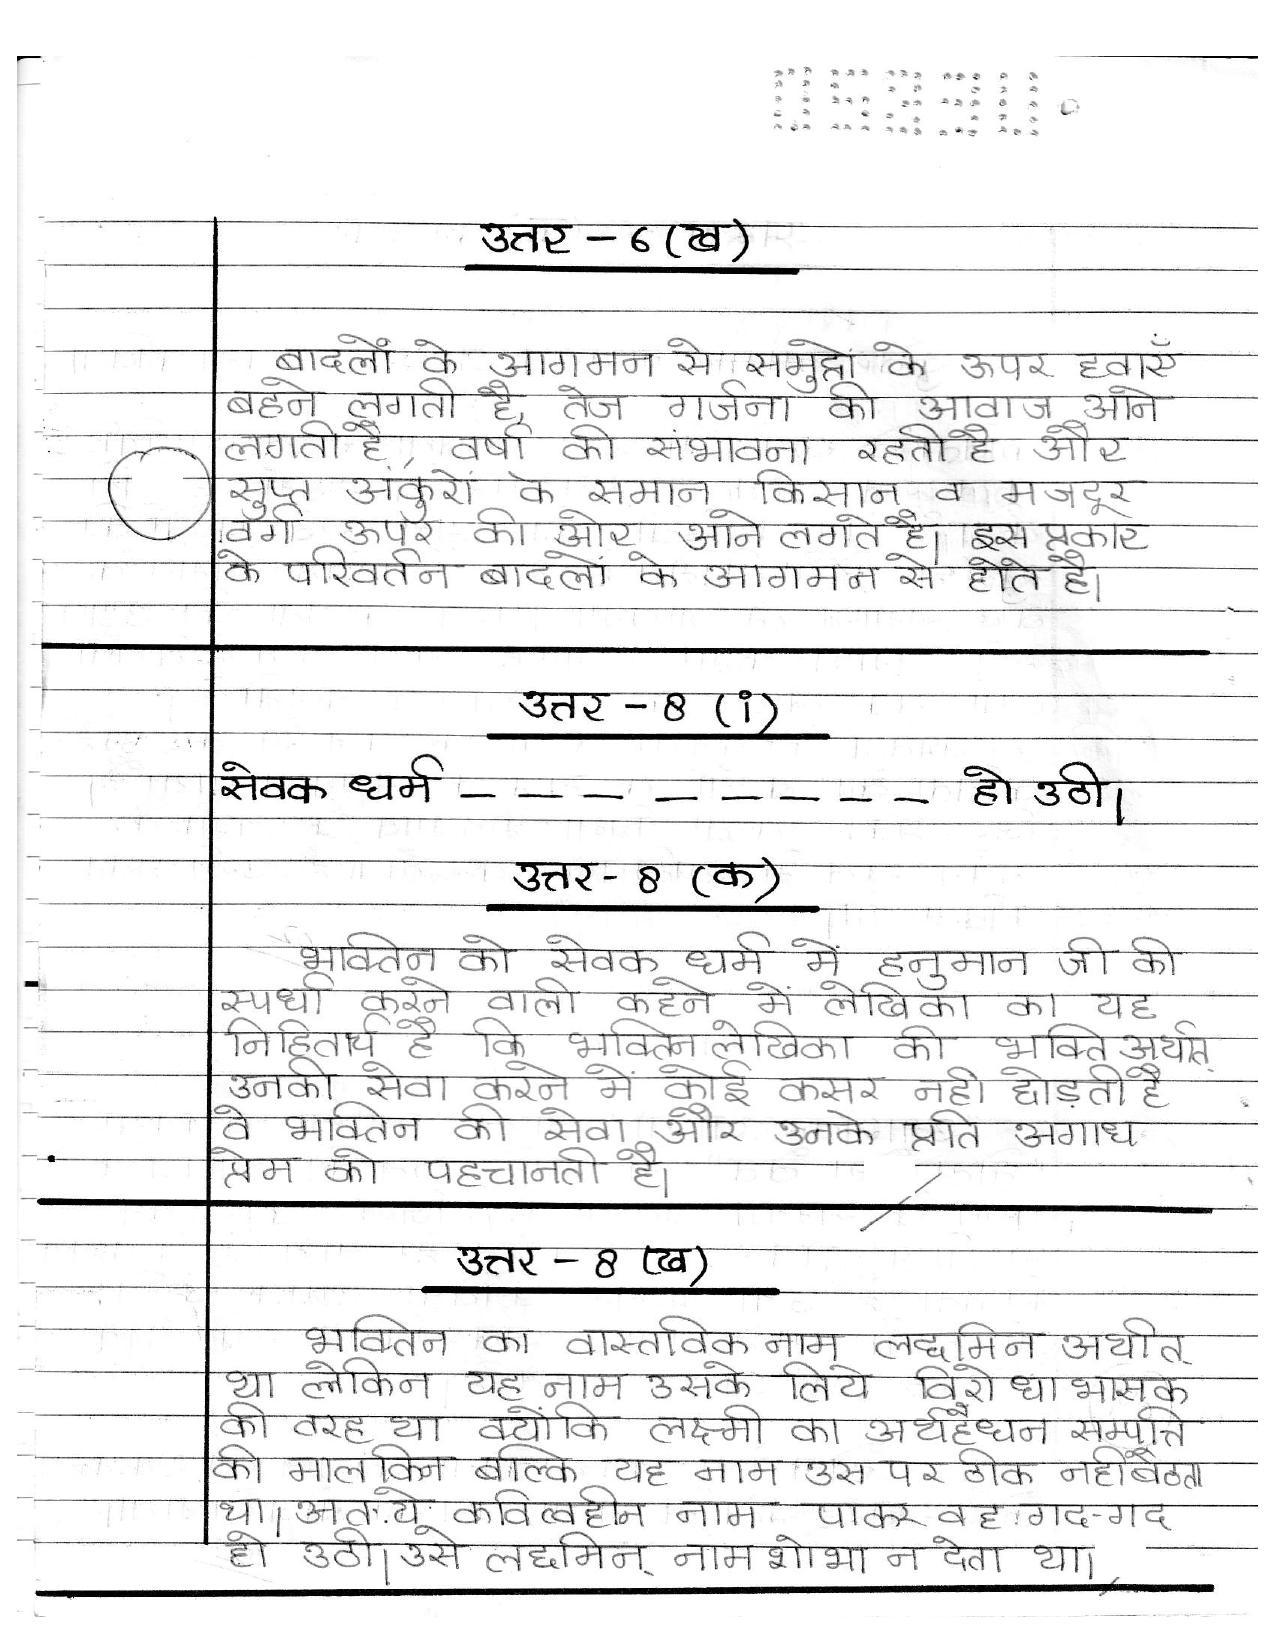 उत्तर - 6 (ख)
बादलों के आगमन से समुद्रों के ऊपर हवाएँ
बहने लगती है, तेज गर्जना की आवाज आने
लगती है, वर्षा की संभावना रहती है और
सुप्त अंकुरों के समान किसान व मजदूर
वर्ग ऊपर की ओर आने लगते है। इस प्रकार
के परिवर्तन बादलों के आगमन से होते है।
उत्तर - 8 (i)
सेवक धर्म - - - - - - - - - हो उठी।
उत्तर - 8 (क)
भक्तिन को सेवक धर्म में हनुमान जी की
स्पर्धा करने वाली कहने में लेखिका का यह
निहितार्थ है कि भक्तिन लेखिका की भक्ति अर्थात्
उनकी सेवा करने में कोई कसर नही छोड़ती है
वे भक्तिन की सेवा और उनके प्रति अगाध
प्रेम को पहचानती है।
उत्तर - 8 (ख)
भक्तिन का वास्तविक नाम लछमिन अर्थात्
था लेकिन यह नाम उसके लिये विरोधाभासक
की तरह था क्योंकि लक्ष्मी का अर्थ है धन सम्पत्ति
की मालकिन बल्कि यह नाम उस पर ठीक नहीं बैठता
था। अतः ये कवित्वहीन नाम पाकर वह गद-गद
हो उठी। उसे लछमिन नाम शोभा न देता था।